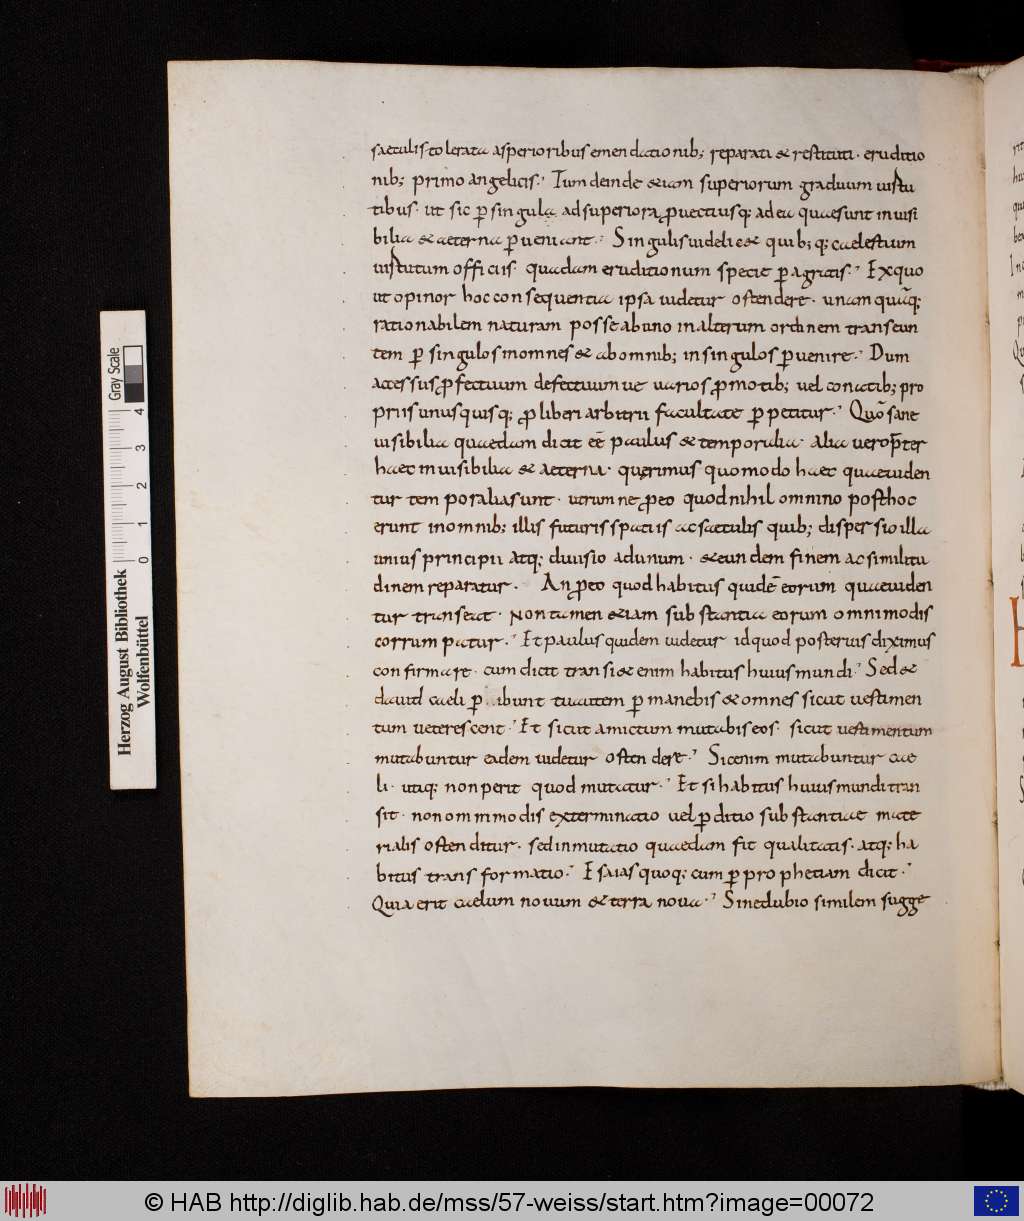 saeculis tolerata asperioribus emendationib; reparati & restituti· eruditio
nib; primo angelicis· Tum deinde &iam superiorum graduum uirtu
tibus· ut sic p̄ singula ad superiora ꝓuecti usq; ad ea quae sunt inuisi
bilia & aeterna p̄ueniant· Singulis uidelic& quib;q; caelestium
uirtutum officiis· quadam eruditionum specie p̄agratis· Ex quo
ut opinor hoc consequentia ipsa uidetur ostendere· unamquāq;
rationabilem naturam posse ab uno in alterum ordinem transeun
tem p̄ singulos in omnes & ab omnib; in singulos p̄uenire· Dum
accessus ꝓfectuum defectuumue uarios ꝓ motib; uel conatib; pro
priis unusquisq; ꝓ liberi arbitrii facultate p̄petitur· Quō sane
uisibilia quaedam dicit eē paulus & temporalia· alia uero p̄ter
haec inuisibilia & aeterna· querimus quomodo haec quae uiden
tur temporalia sunt· utrumne ꝓeo quod nihil omnino post hoc
erunt in omnib; illis futuris spatiis ac saeculis quib; dispersio illa
unius principii atq; diuisio ad unum· & eundem finem ac similitu
dinem reparatur· An ꝓeo quod habitus quidē eorum quae uiden
tur transeat· Non tamen &iam substantia eorum omnimodis
corrumpatur· Et paulus quidem uidetur id quod posterius diximus
confirmare· cum dicit transi& enim habitus huius mundi· Sed &
dauid caeli p̄ ibunt tu autem p̄manebis & omnes sicut uestimen
tum ueterescent· Et sicut amictum mutabis eos· sicut uestimentum
mutabuntur eadem uidetur ostendere· Si enim mutabuntur cae
li· utiq; non perit quod mutatur· Et si habitus huius mundi tran
sit· non ommimodis exterminatio uel p̄ditio substantiae mate
rialis ostenditur· sed inmutatio quaedam fit qualitatis· atq; ha
bitus transformatio· Esaias quoq; cum p̄ prophetiam dicit·
Quia erit caelum nouum & terra noua· Sine dubio similem sugge
Gray Scale
0 1 2 3 4
Herzog August Bibliothek
Wolfenbüttel
© HAB http://diglib.hab.de/mss/57-weiss/start.htm?image=00072